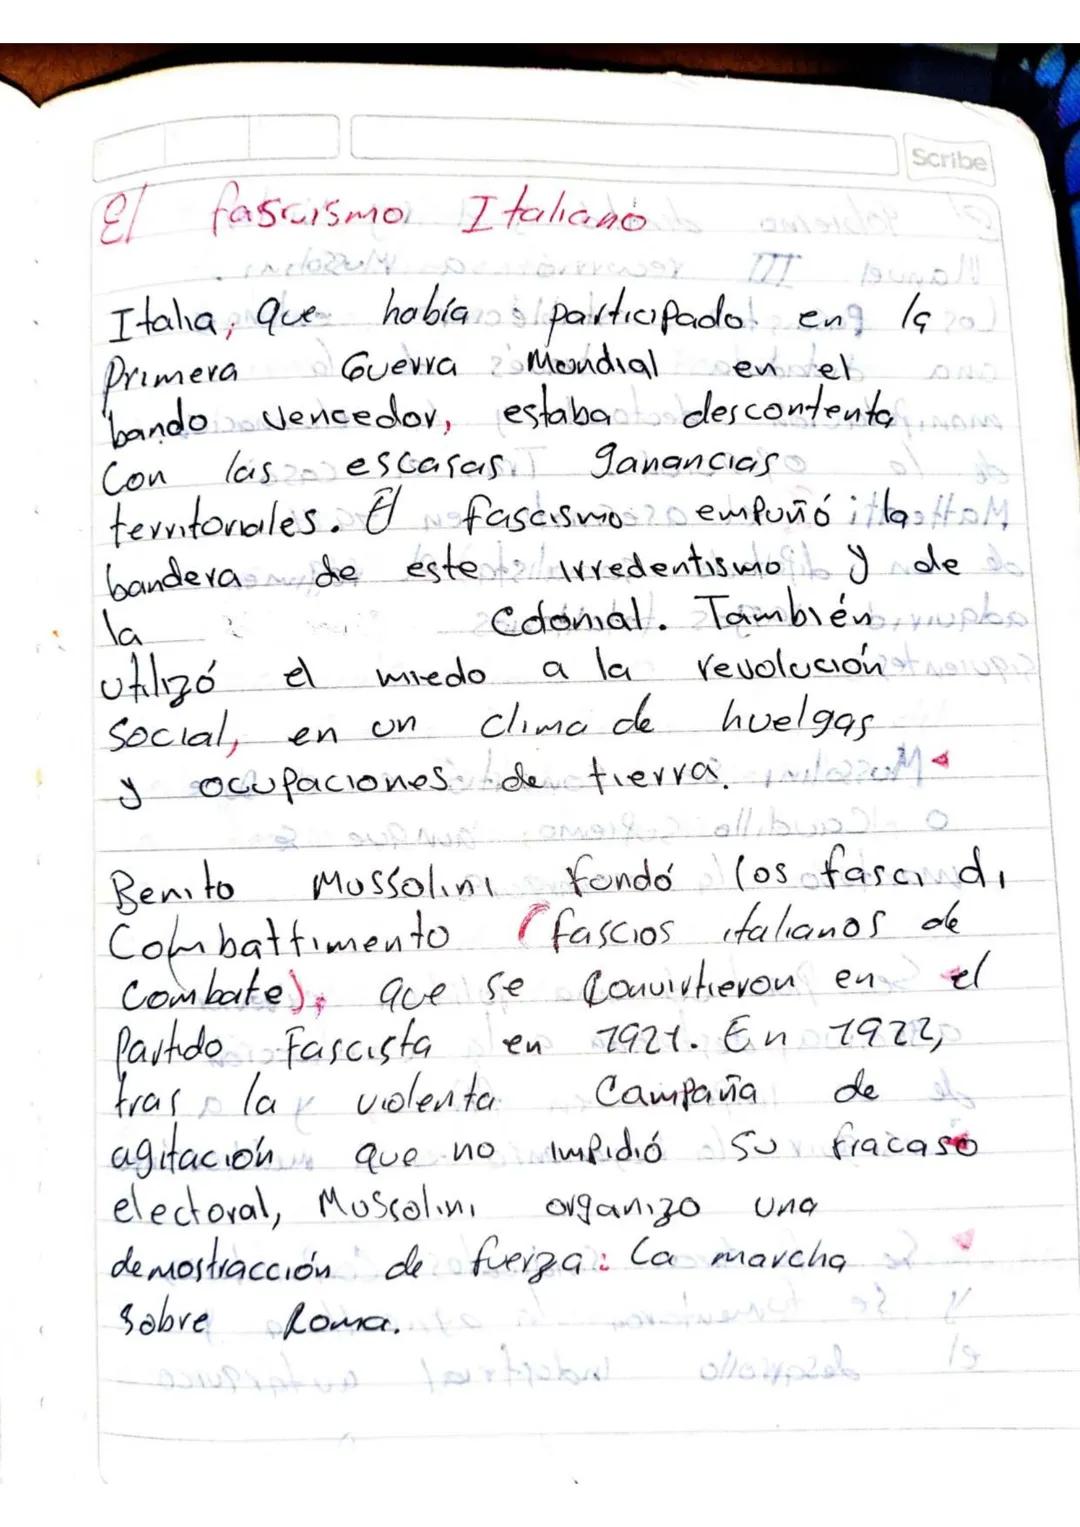 Scribe
El fascismo Italiano
Italia, que había participado en la
Primera Guerra Mundial en el
bando vencedor, estaba descontenta
Con las escasas ganancias
territoriales. El fascismo empuñó la
bandera de este irredentismo y de
la Colonial. También
utilizó el miedo a la revolución
Social, en un clima de huelgas
y ocupaciones de tierra.
Benito Mussolini fundó los fasci di
Combattimento (fascios italianos de
Combate), que se Convirtieron en el
Partido Fascista en 1921. En 1922,
tras la violenta Campaña de
agitación que no impidió su fracaso
electoral, Mussolini organizo una
demostracción de fuerza: La marcha
Sobre Roma.